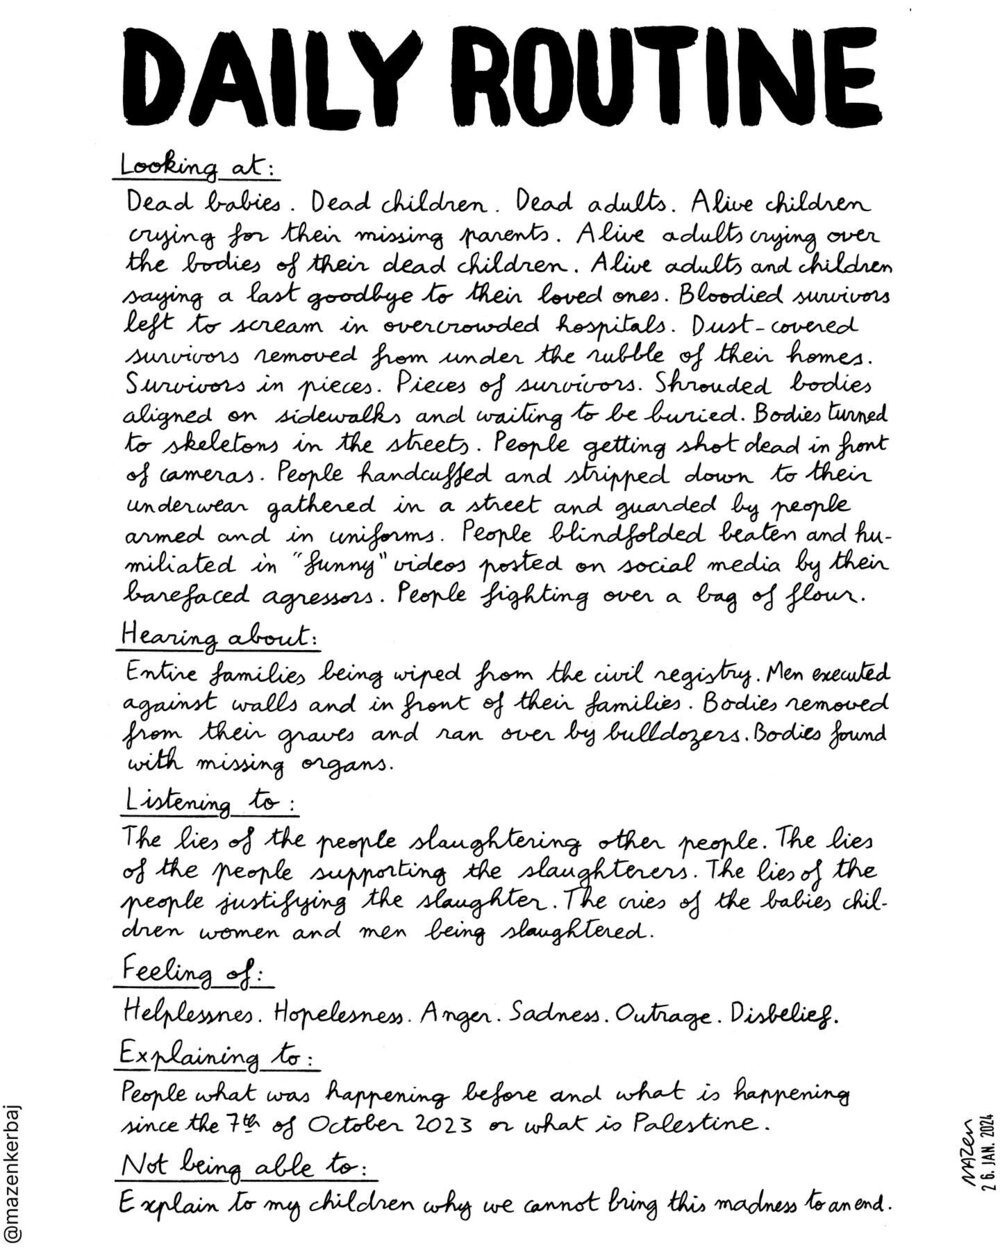 DAILY ROUTINE
Looking at:
Dead babies. Dead children. Dead adults. Alive children
crying for their missing parents. Alive adults crying over
the bodies of their dead children. Alive adults and children
saying a last goodbye to their loved ones. Bloodied survivors
left to scream in overcrowded hospitals. Dust-covered
survivors removed from under the rubble of their homes.
Survivors in pieces. Pieces of survivors. Shrouded bodies
aligned on sidewalks and waiting to be buried. Bodies turned
to skeletons in the streets. People getting shot dead in front
of cameras. People handcuffed and stripped down to their
underwear gathered in a street and guarded by people
armed and in uniforms. People blindfolded beaten and hu-
miliated in "funny" videos posted on social media by their
barefaced agressors. People fighting over a bag of flour.
Hearing about:
Entire families being wiped from the civil registry. Men executed
against walls and in front of their families. Bodies removed
from their graves and ran over by bulldozers. Bodies found
with missing organs.
Listening to:
The lies of the people slaughtering other people. The lies
of the people supporting the slaughterers. The lies of the
people justifying the slaughter. The cries of the babies chil-
dren women and men being slaughtered.
Feeling of:
Helplessnes. Hopelesness. Anger. Sadness. Outrage. Disbelief.
Explaining to:
People what was happening before and what is happening
since the 7th of October 2023 or what is Palestine.
Not being able to:
Explain to my children why we cannot bring this madness to an end.
@mazenkerbaj
MAZEN
26. JAN. 2024